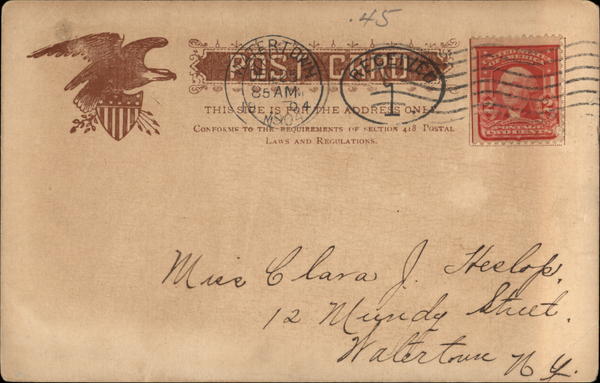 .45
POST CARD
WATERTOWN
85 AM
N.Y.
RECEIVED
1
THIS SIDE IS FOR THE ADDRESS ONLY
CONFORMS TO THE REQUIREMENTS OF SECTION 418 POSTAL
LAWS AND REGULATIONS.
UNITED STATES
OF AMERICA
POSTAGE
TWO CENTS
Miss Clara J. Heslop.
12 Mundy Street.
Watertown N.Y.